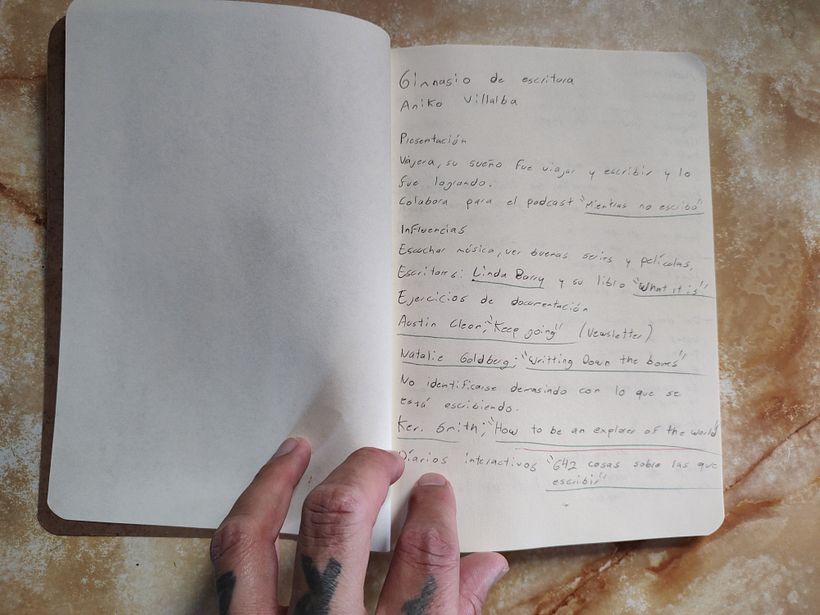 Gimnasio de escritura
Aniko Villalba
Presentación
Viajera, su sueño fue viajar y escribir y lo
fue logrando.
Colabora para el podcast "Mientras no escribo"
Influencias
Escuchar música, ver buenas series y películas,
Escritores: Linda Barry y su libro "What it is"
Ejercicios de documentación
Austin Cleon; "Keep going" (Newsletter)
Natalie Goldberg; "Writting Down the bones"
No identificarse demasiado con lo que se
está escribiendo.
Keri Smith; "How to be an explorer of the world
Diarios interactivos "642 cosas sobre las que
escribir"